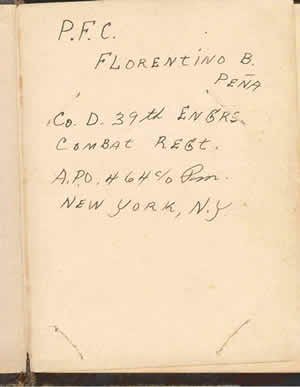 P.F.C.
FLORENTINO B.
PEÑA
Co. D. 39th ENGRS.
COMBAT REGT.
A.P.O. 464 c/o Pm.
NEW YORK, N.Y.